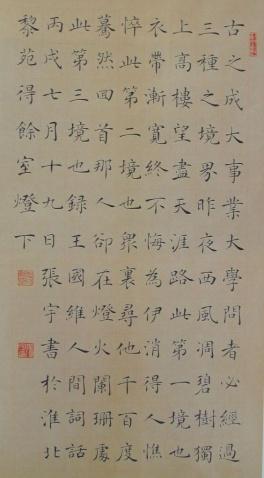 古之成大事業大學問者必經過
三種之境界昨夜西風凋碧樹獨
上高樓望盡天涯路此第一境也
衣帶漸寬終不悔為伊消得人憔
悴此第二境也眾裏尋他千百度
驀然回首那人卻在燈火闌珊處
此第三境也録王國維人間詞話
丙戌七月十九日張宇書於淮北
黎苑得餘室燈下